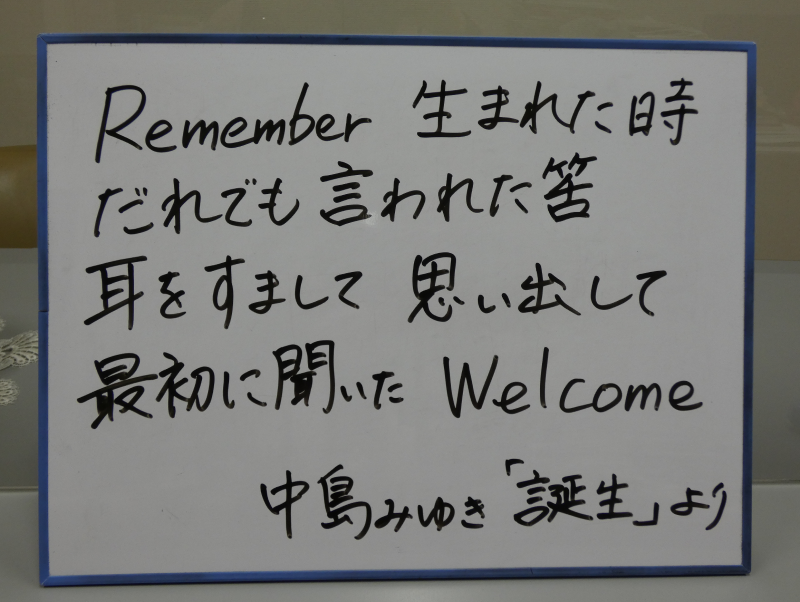 Remember 生まれた時
だれでも言われた筈
耳をすまして 思い出して
最初に聞いた Welcome
中島みゆき「誕生」より